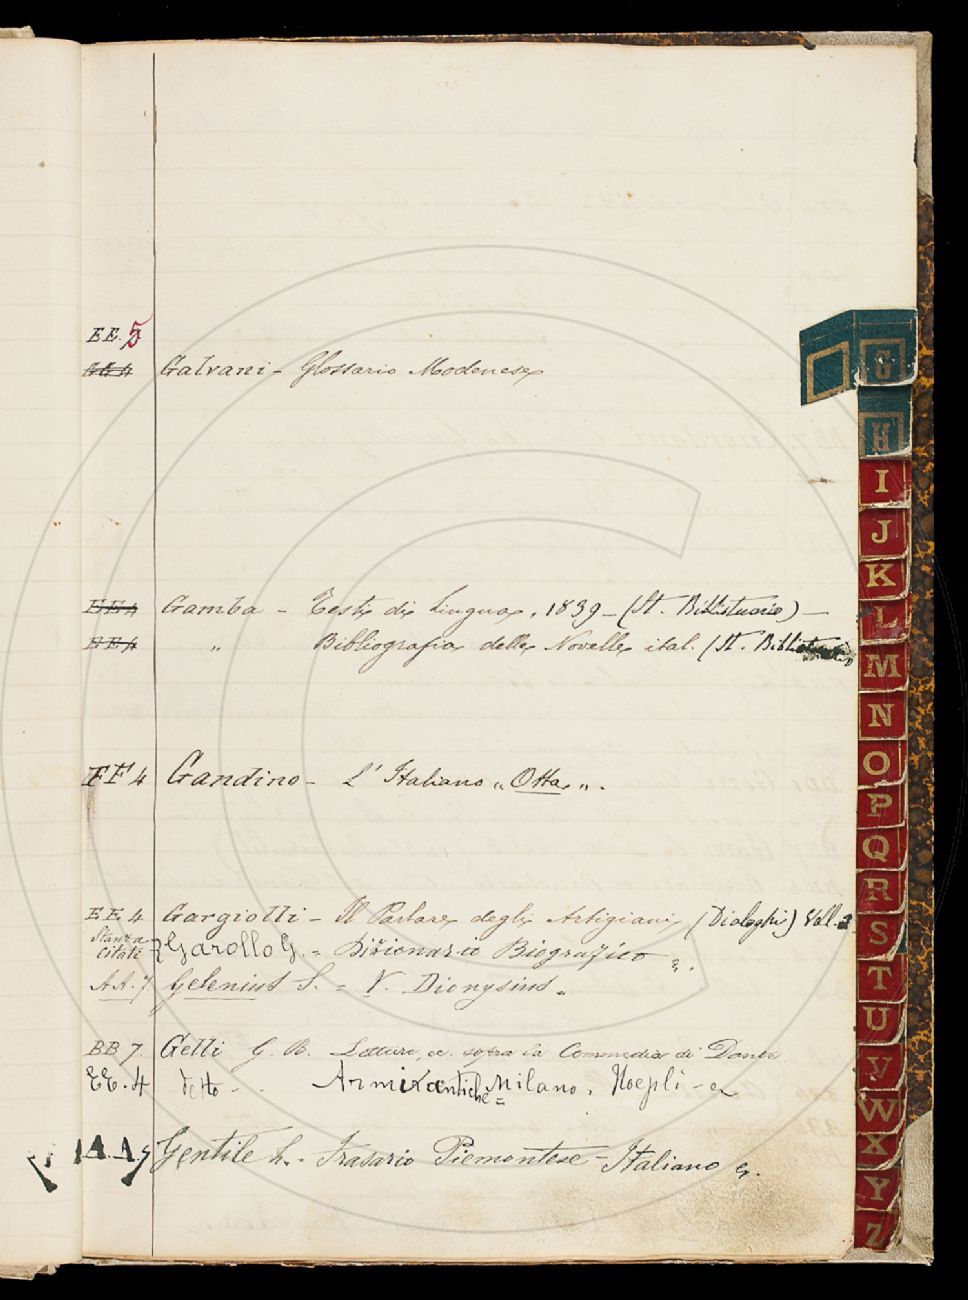 EE. 5
EE 4 Galvani - Glossario Modenese
EE 4 Gamba - Testi di Lingua, 1839 - (St. Bibliotecario) -
EE 4 " Bibliografia delle Novelle ital. (St. Bibliotecario)
EE 4 Gandino - L' Italiano „ Otta „.
EE 4 Gargiolli - Il Parlare degli Artigiani (Dialoghi) Voll. 2
Stanza
citate Garollo G. = Dizionario Biografico
AA. 7 Gelenius S. = V. Dionysius „
BB 7. Gelli G. B. Letture, ec. sopra la Commedia di Dante
EE. 4 Detto - Milano. Hoepli -
AA. Gentile L. - Frasario Piemontese = Italiano
G
H
I
J
K
L
M
N
O
P
Q
R
S
T
U
V
W
X
Y
Z